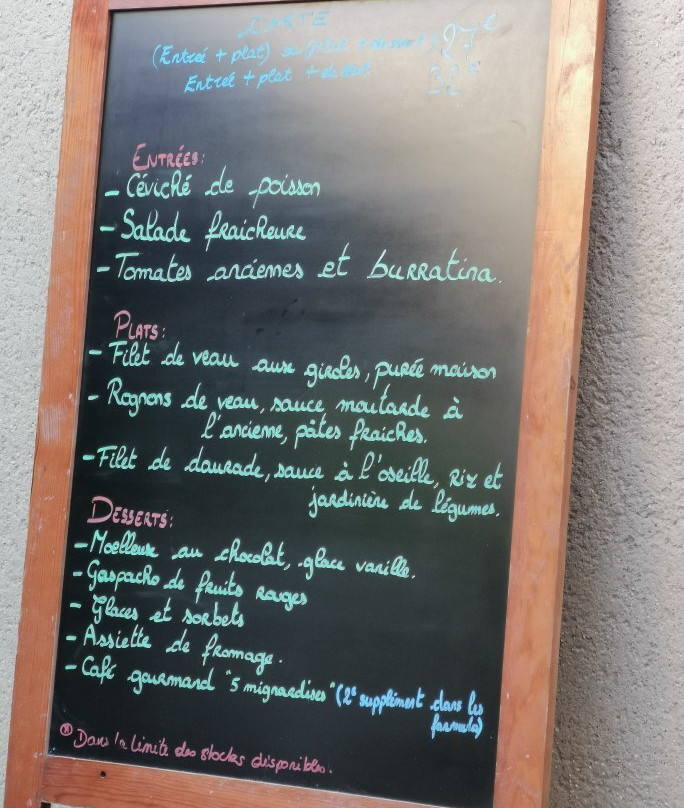 CARTE
(Entrée + plat) ou (plat + dessert) 27€
Entrée + plat + dessert 32€
ENTRÉES:
- Céviché de poisson
- Salade fraicheure
- Tomates anciennes et burratina.
PLATS:
- Filet de veau aux giroles, purée maison
- Rognons de veau, sauce moutarde à
l'ancienne, pâtes fraiches.
- Filet de daurade, sauce à l'oseille, riz et
jardinière de légumes.
DESSERTS:
- Moelleux au chocolat, glace vanille.
- Gaspacho de fruits rouges
- Glaces et sorbets
- Assiette de fromage.
- Café gourmand "5 mignardises" (2€ supplément dans les
formules)
Dans la limite des stocks disponibles.